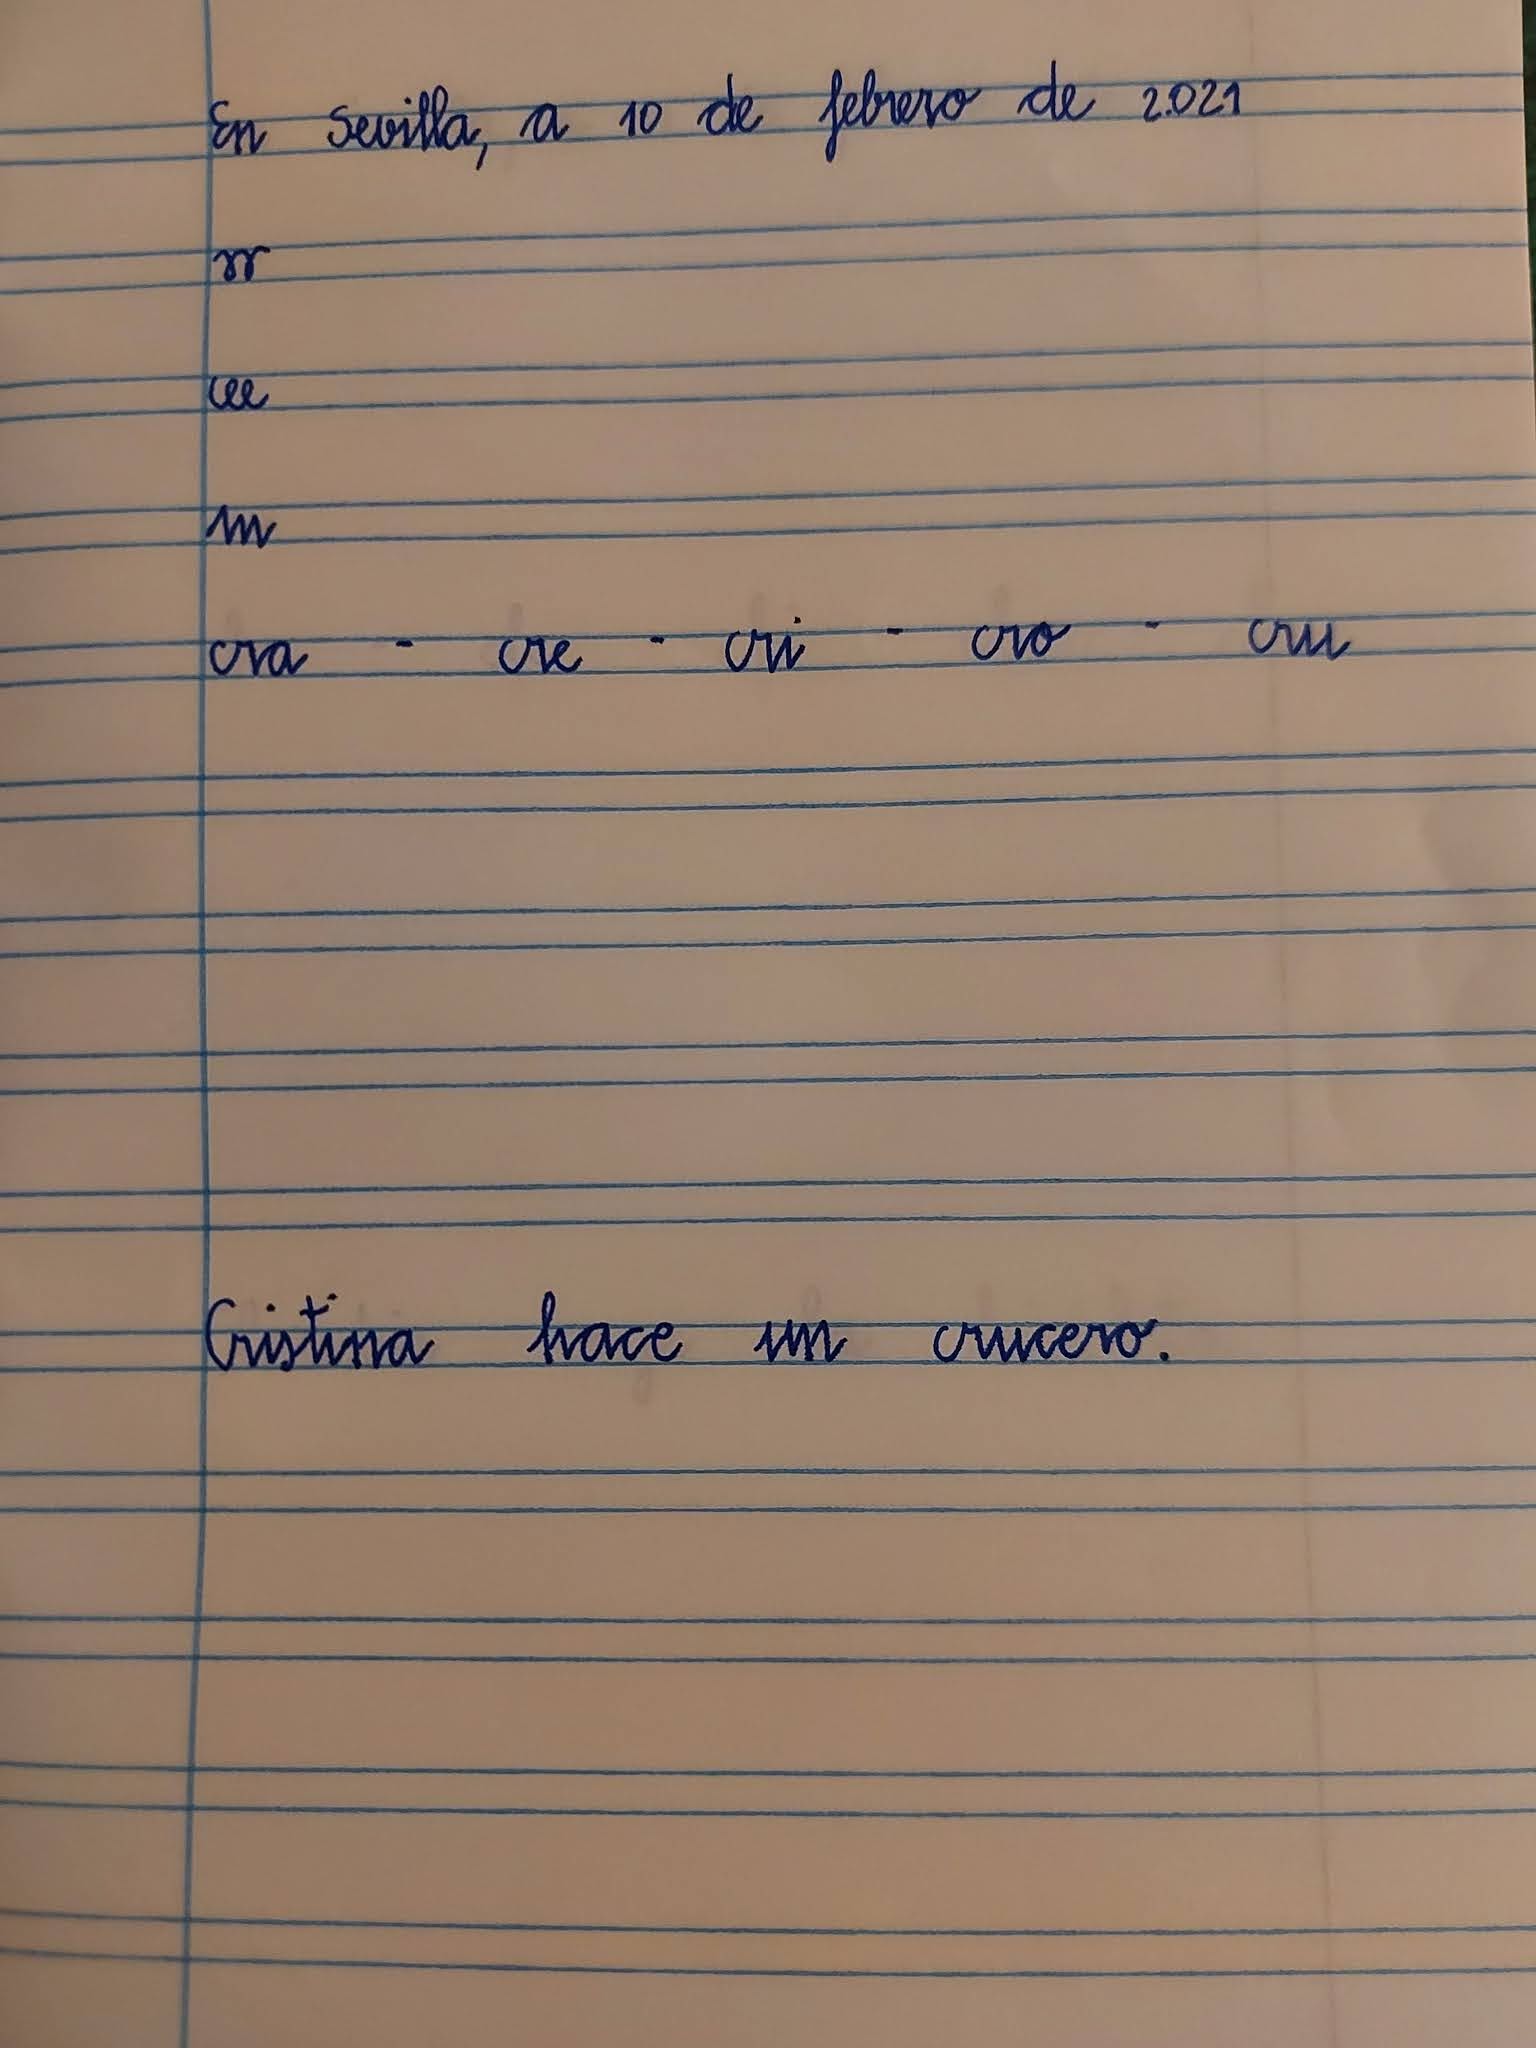 En Sevilla, a 10 de febrero de 2.021
rr
cee
m
cra - cre - cri - cro - cru
Cristina hace un crucero.